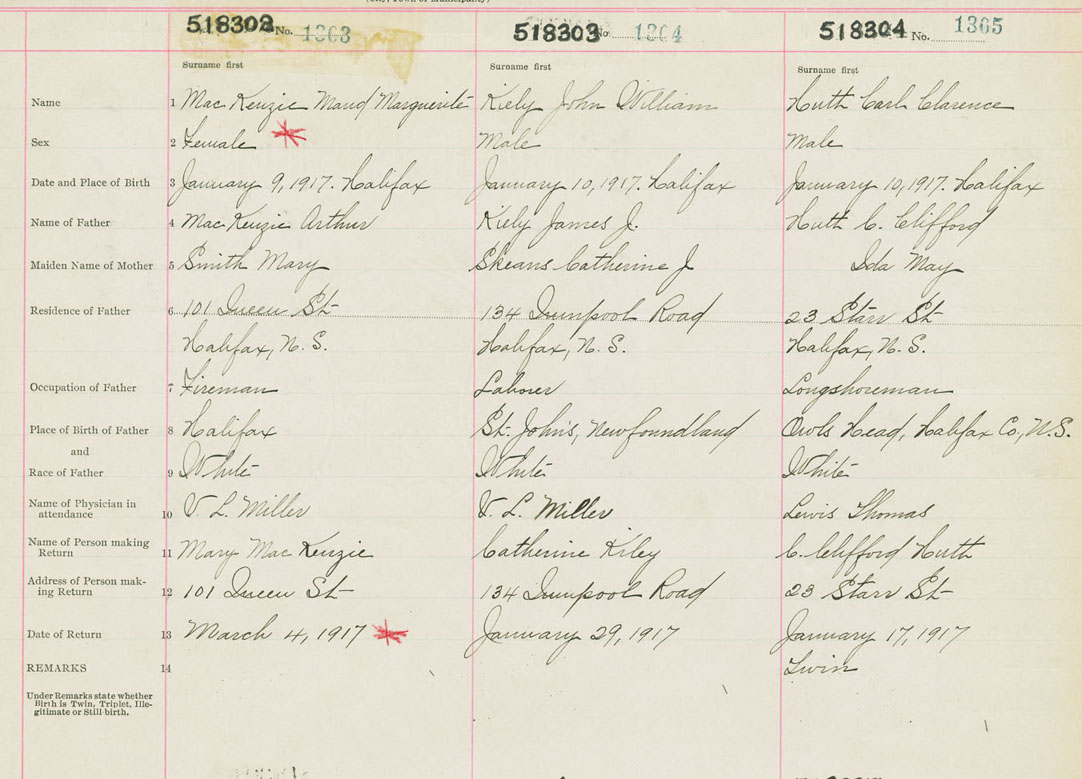 (City, Town or Municipality)
518302 No. 1363 518303 No. 1364 518304 No. 1365
Surname first Surname first Surname first
Name 1 Mac Kenzie Maud Marguerite Kiely John William Huth Carl Clarence
Sex 2 Female Male Male
Date and Place of Birth 3 January 9, 1917. Halifax January 10, 1917. Halifax January 10, 1917. Halifax
Name of Father 4 Mac Kenzie Arthur Kiely James J. Huth C. Clifford
Maiden Name of Mother 5 Smith Mary Skeans Catherine J Ida May
Residence of Father 6 101 Queen St 134 Road 23 Starr St
Halifax, N. S. Halifax, N. S. Halifax, N. S.
Occupation of Father 7 Fireman Laborer Longshoreman
Place of Birth of Father 8 Halifax St. John's, Newfoundland Owls Head, Halifax Co., N.S.
and
Race of Father 9 White White White
Name of Physician in
attendance 10 V. L. Miller V. L. Miller Lewis Thomas
Name of Person making
Return 11 Mary Mac Kenzie Catherine Kiley C. Clifford Huth
Address of Person mak-
ing Return 12 101 Queen St 134 Road 23 Starr St
Date of Return 13 March 4, 1917 January 29, 1917 January 17, 1917
REMARKS 14 Twin
Under Remarks state whether
Birth is Twin, Triplet, Ille-
gitimate or Still-birth.